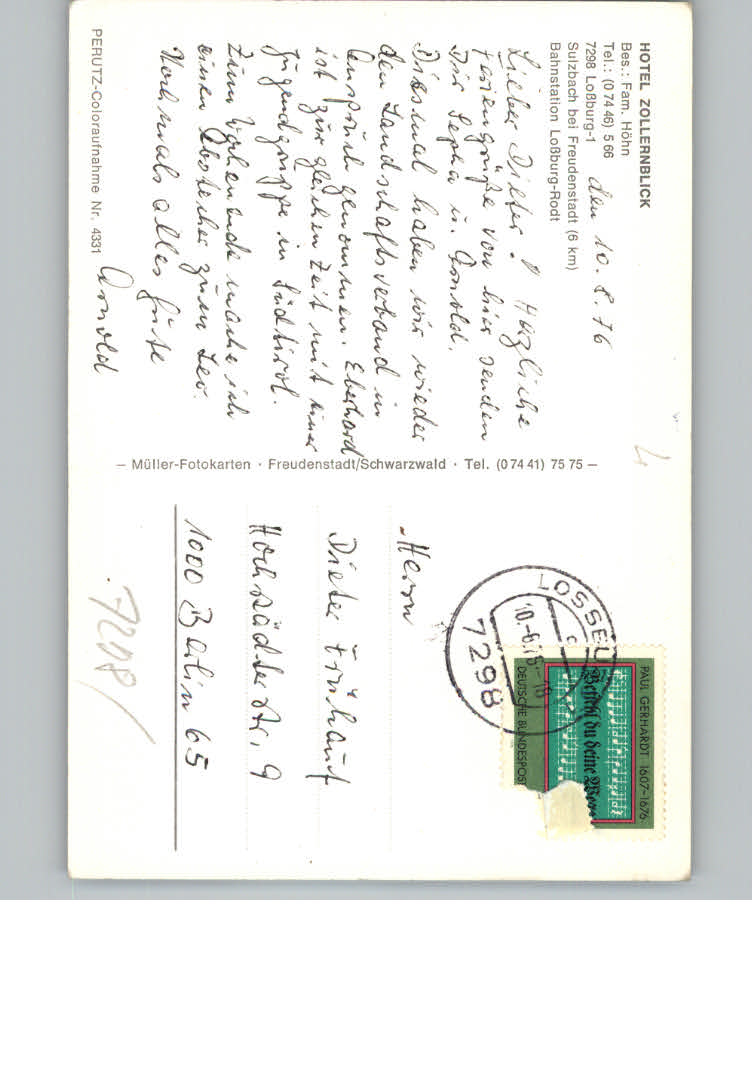 HOTEL ZOLLERNBLICK
Bes.: Fam. Höhn
Tel.: (0 74 46) 5 66
7298 Loßburg-1
Sulzbach bei Freudenstadt (6 km)
Bahnstation Loßburg-Rodt
den 10. 8. 76
Lieber Dieter! Herzliche
Feriengrüße von hier senden
Dir u. Arnold.
Diesmal haben wir wieder
den Landschaftsverband in
Anspruch genommen. Eberhard
ist zur gleichen Zeit mit einer
Jugendgruppe in Südtirol.
Zum Wochenende mache ich
einen Abstecher zum
Nochmals alles Gute
Arnold
PERUTZ-Coloraufnahme Nr. 4331
– Müller-Fotokarten · Freudenstadt/Schwarzwald · Tel. (0 74 41) 75 75 –
Herrn
Dieter Frühauf
Hochstädter Str. 9
1000 Berlin 65
7298/
LOSSBU
7298
PAUL GERHARDT 1607-1676
Befiehl du deine
DEUTSCHE BUNDESPOST